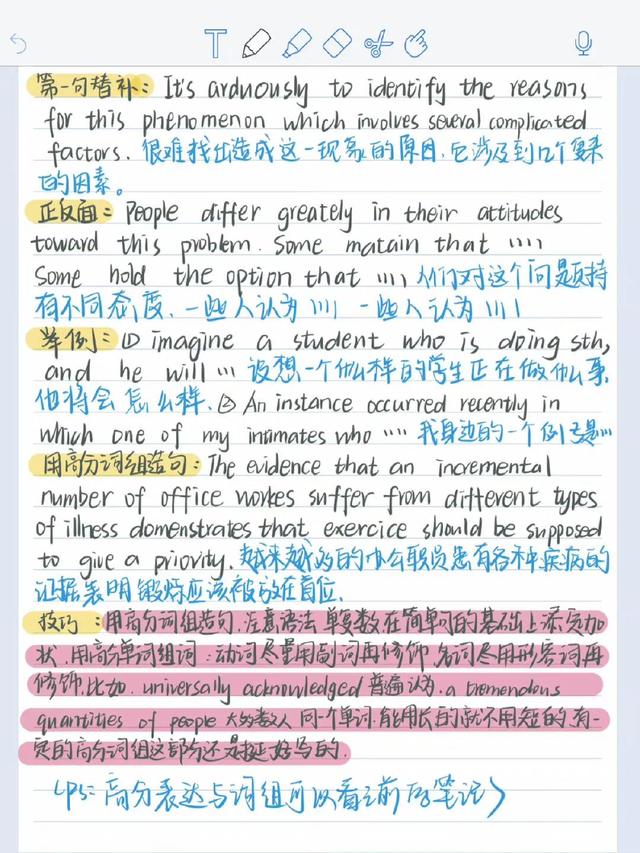 第一句替补: It's arduously to identify the reasons
for this phenomenon which involves several complicated
factors. 很难找出造成这一现象的原因,它涉及到几个复杂
的因素。
正反面: People differ greately in their attitudes
toward this problem. Some matain that ''''
Some hold the option that '''', 人们对这个问题持
有不同态度,一些人认为 '''' 一些人认为 ''''
举例: ① imagine a student who is doing sth,
and he will ''' 设想一个什么样的学生正在做什么事,
他将会怎么样. ② An instance occurred recently in
which one of my intimates who '''' 我身边的一个例子是''''
用高分词组造句: The evidence that an incremental
number of office workes suffer from different types
of illness domenstrates that exercice should be supposed
to give a priority. 越来越多的办公职员患有各种疾病的
证据表明锻炼应该被放在首位.
技巧: 用高分词组造句,注意语法 单复数在简单句的基础上添定加
状,用高分单词组词:动词尽量用副词再修饰,名词尽用形容词再
修饰.比如. universally acknowledged 普遍认为. a tremendous
quantities of people 大多数人 同一个单词.能用长的就不用短的.有一
定的高分词组这部分还是挺好写的.
(PS: 高分表达与词组可以看之前的笔记)